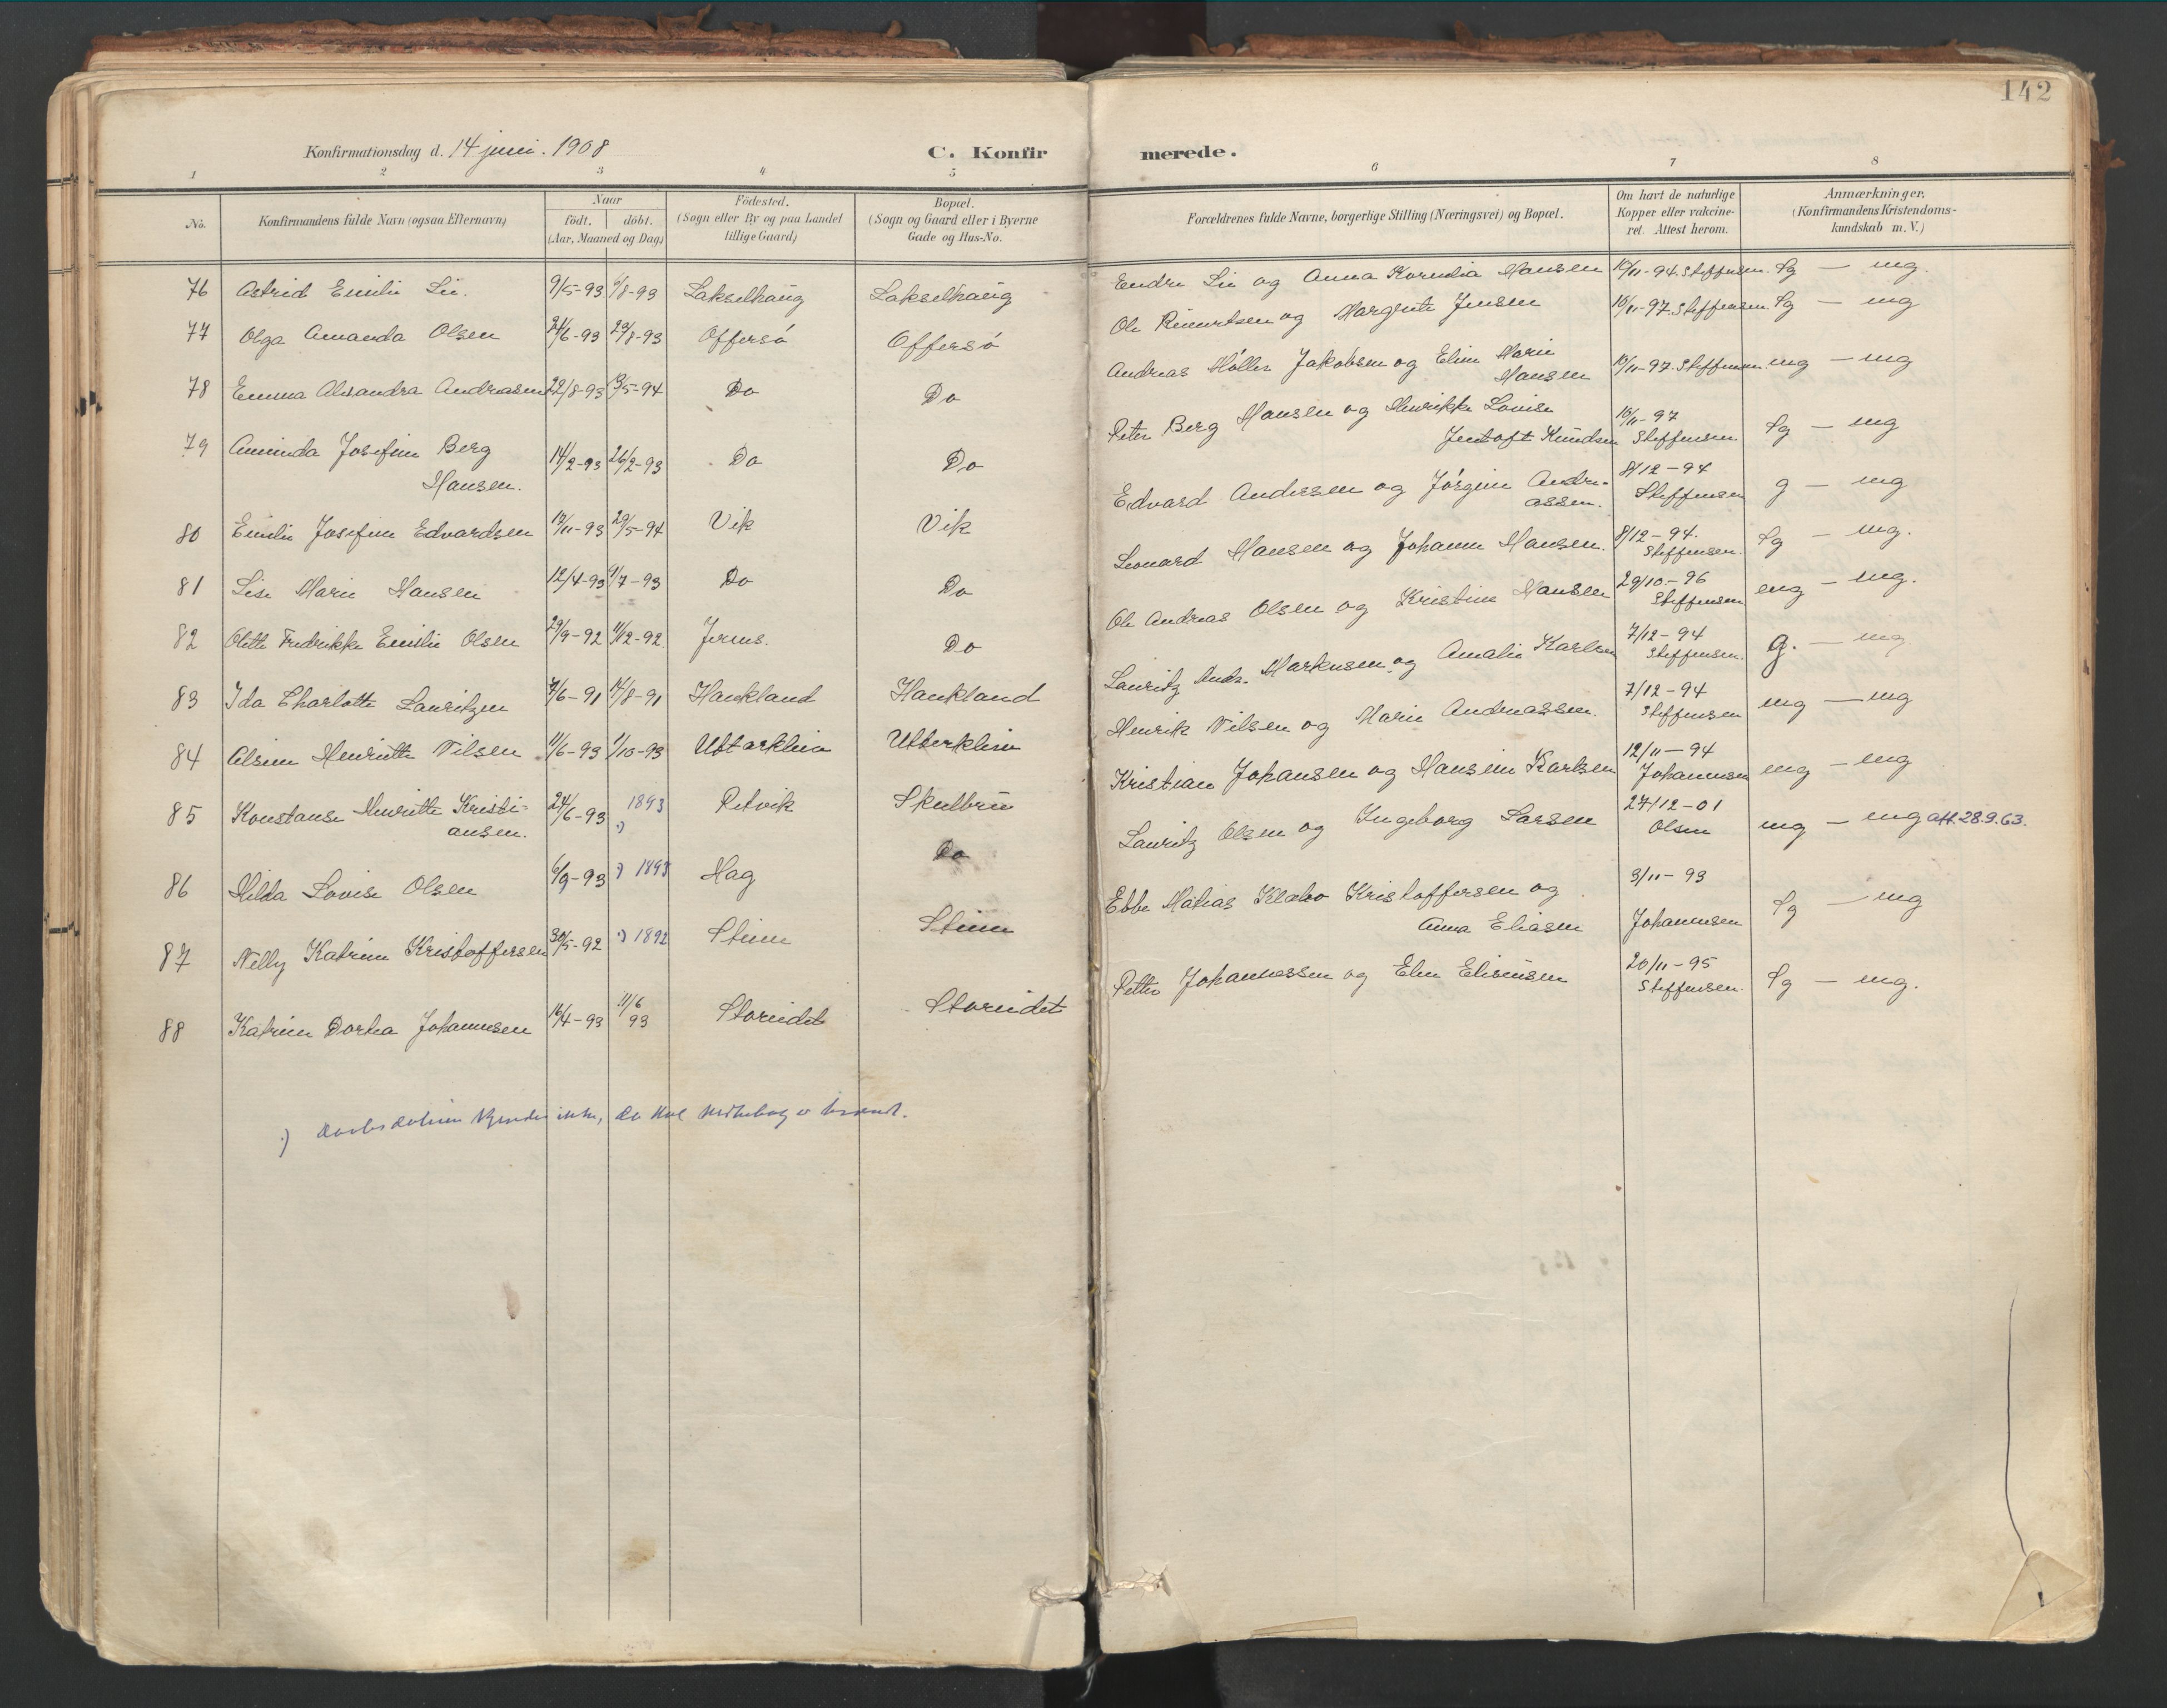 142
Konfirmationsdag d. 14 juni. 1908
C. Konfir merede.
1 2 3 4 5 6 7 8
No.
Konfirmandens fulde Navn (ogsaa Efternavn)
Naar
födt. döbt.
(Aar, Maaned og Dag)
Födested.
(Sogn eller By og paa Landet
tillige Gaard)
Bopæl.
(Sogn og Gaard eller i Byerne
Gade og Hus-No.
Forældrenes fulde Navne, borgerlige Stilling (Næringsvei) og Bopæl.
Om havt de naturlige
Kopper eller vakcine-
ret. Attest herom.
Anmærkninger.
(Konfirmandens Kristendoms-
kundskab m. V.)
76 Astrid Emilie Lie. 9/5-93 /8-93 Lakselhaug Lakselhaug Endre Lie og Anna Kornelia Hansen /11-94. Steffensen. Sg — mg.
77 Olga Amanda Olsen /6-93 29/8-93 Offersö Offersö Ole Rinertsen og Margrete Jensen 10/11-97. Steffensen. Sg — mg
78 Emma Alexandra Andreasen 22/8-93 /5-94 Do Do Andreas Möller Jakobsen og Eline Marie
Hansen /11-97. Steffensen mg — mg
79 Aminda Josefine Berg
Hansen. 14/2-93 26/2-93 Do Do Peter Berg Hansen og Henrikke Lovise
Jentoft Knudsen 10/11-97
Steffensen Sg — mg
80 Emilie Josefine Edvardsen /11-93 29/5-94 Vik Vik Edvard Andersen og Jörgine Andre-
assen. 8/12-94
Steffensen g — mg
81 Lise Marie Hansen 12/4-93 /7-93 Do Do Leonard Hansen og Johanne Hansen. 8/12-94.
Steffensen. Sg — mg.
82 Olette Fredrikke Emilie Olsen 29/9-92 11/12-92. Jerns. Do Ole Andreas Olsen og Kristine Hansen 29/10-96
Steffensen mg — mg.
83 Ida Charlotte Lauritzen 7/6-91 14/8-91 Haukland Haukland Lauritz Andr. Markusen og Amalie Karlsen 7/12-94
Steffensen. g. — mg
84 Alsine Henriette Nilsen 11/6-93 1/10-93 Uttakleiv Utterkleiv Henrik Nilsen og Marie Andreassen. 7/12-94
Steffensen mg — mg
85 Konstanse Henriette Kristi-
ansen. 24/6-93 1893 Petvik Skulbru Kristian Johansen og Hansine Karlsen 12/11-94
Johannesen mg — mg
86 Hilda Lovise Olsen 6/9-93 1893 Hag Do Lauritz Olsen og Ingeborg Larsen 27/12-01
Olsen mg — mg att. 28.9.63.
87 Nelly Katrine Kristoffersen 30/5-92 1892 Stine Stine Ebbe Matias Klæbo Kristoffersen og
Anna Eliasen 3/11-93
Johannesen Sg — mg
88 Katrine Dortea Johannesen 16/4-93 11/6
93 Storeidet Storeidet Petter Johannessen og Eline Eliseusen 20/11-95
Steffensen. Sg — mg.
Daabsdatum kjendes ikke, da Hol er brændt.